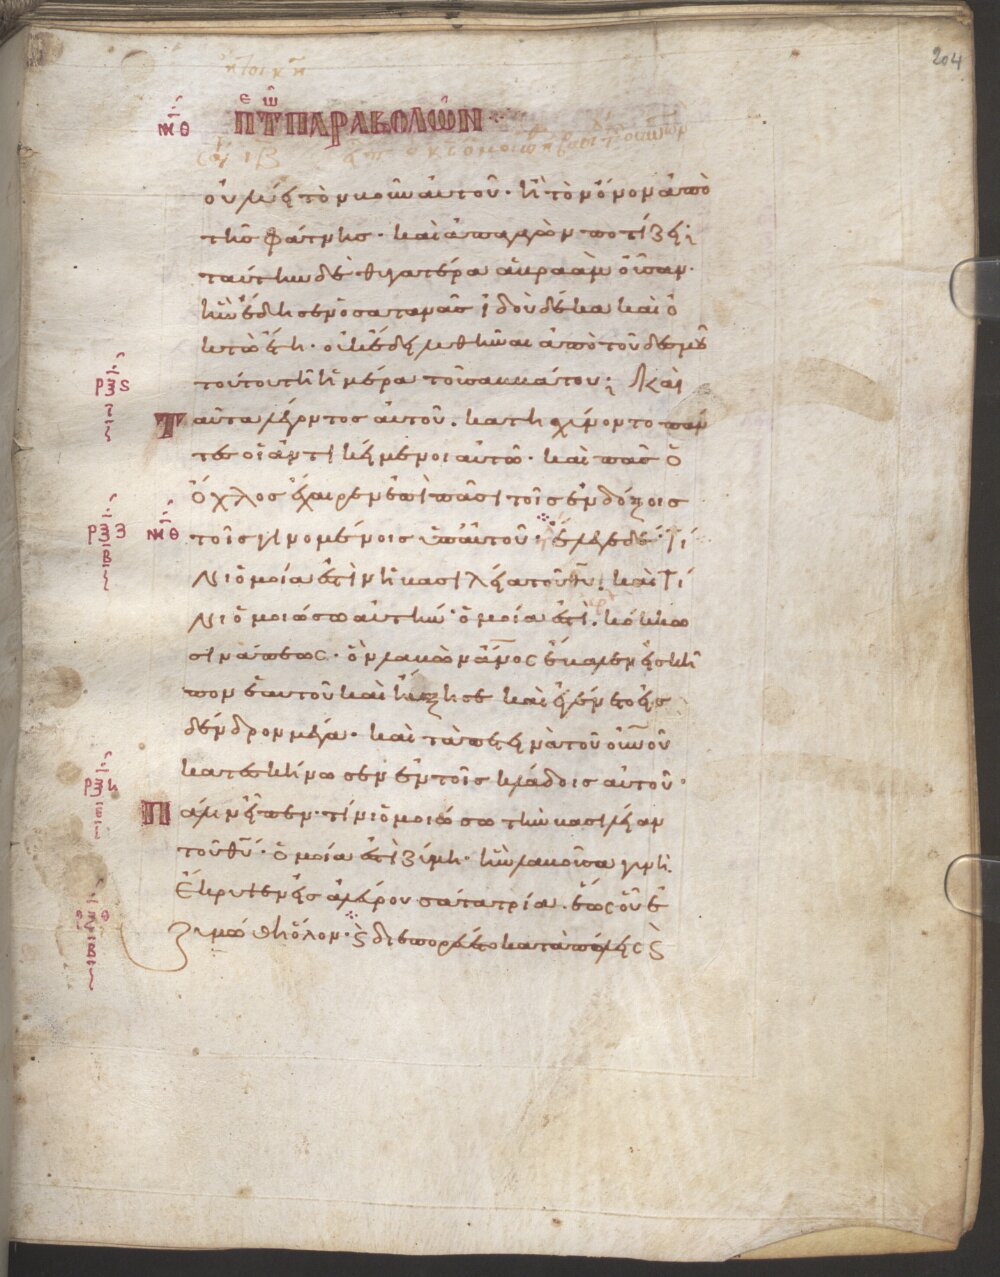 204
ΜΘ
ΠΤ ΠΑΡΑΒΟΛΩΝ
οὐ λύει τὸν βοῦν αὐτοῦ· ἢ τὸν ὄνον ἀπὸ
τῆς φάτνης· καὶ ἀπαγαγὼν ποτίζει;
ταύτην δὲ θυγατέρα ἀβραὰμ οὖσαν·
ἣν ἔδησεν ὁ σατανᾶς ἰδοὺ δέκα καὶ ὀ
κτὼ ἔτη· οὐκ ἔδει λυθῆναι ἀπὸ τοῦ δεσμοῦ
τούτου τῆ ἡμέρα τοῦ σαββάτου; Καὶ
ΡΞϚ
Ταῦτα λέγοντος αὐτοῦ. κατησχύνοντο πάν
τες οἱ ἀντικείμενοι αὐτῶ· καὶ πᾶς ὁ
ὄχλος ἔχαιρεν ἐπὶ πᾶσι τοῖς ἐνδόξοις
ΡΞΖ Β ΜΘ
τοῖς γινομένοις ὑπ' αὐτοῦ· ἔλεγε δὲ· Τί
νι ὁμοία ἐστὶν ἡ βασιλεία τοῦ θυ; καὶ Τί
νι ὁμοιώσω αὐτήν· ὁμοία ἐστὶ. κόκκω
σινάπεως· ὃν λαβὼν ἄνος ἔβαλεν εἰς κῆ
πον ἑαυτοῦ καὶ ηὔξησε καὶ ἐγένετο εἰς
δένδρον μέγα· καὶ τὰ πετεινὰ τοῦ οὐνοῦ
κατεσκήνωσεν ἐν τοῖς κλάδοις αὐτοῦ·
ΡΞΗ
Πάλιν εἶπεν· τίνι ὁμοιώσω τὴν βασιλείαν
τοῦ θυ· ὁμοία ἐστὶ ζύμη· ἣν λαβοῦσα γυνὴ
ἔκρυψεν εἰς ἀλεύρου σάτα τρία. ἕως οὗ ἐ
ζυμώθη ὅλον· ϗ διεπορεύετο κατὰ πόλεις ϗ